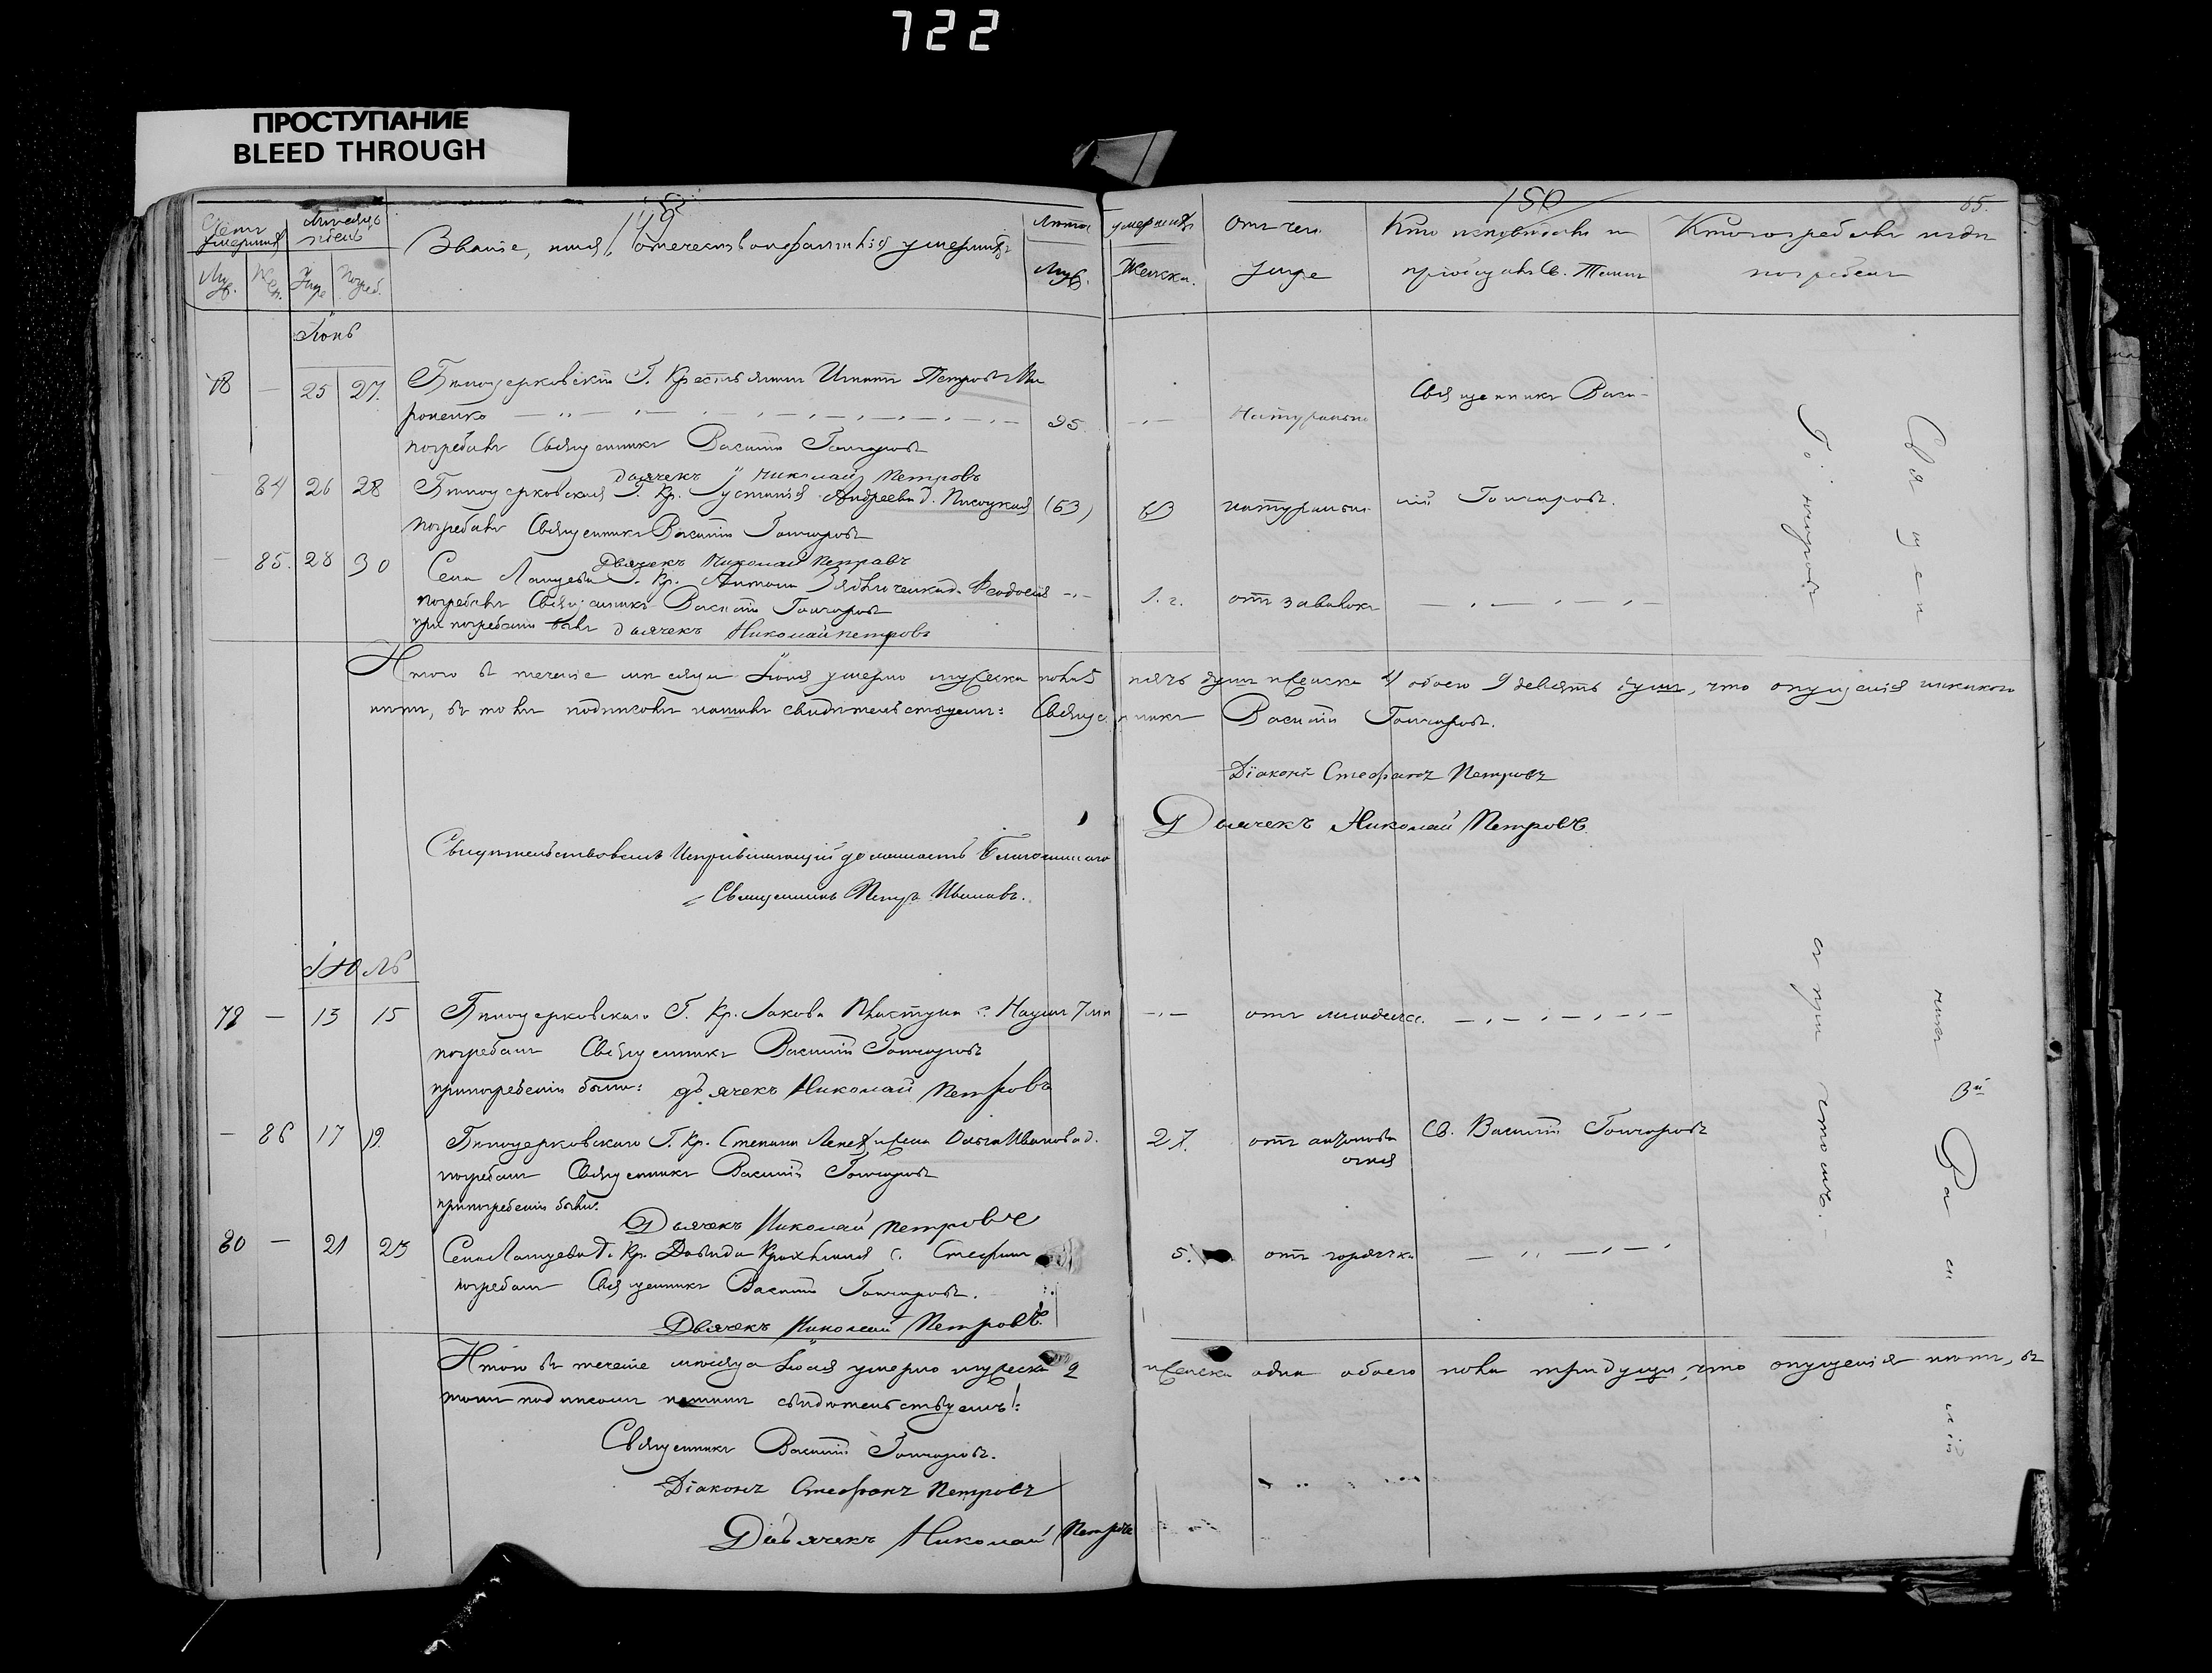 722
ПРОСТУПАНИЕ
BLEED THROUGH
150
85.
Счетъ умершихъ
Мѣсяцъ день
Званіе, имя, отечество и фамилія умершихъ
Лѣта
умершихъ
Отъ чего
Кто исповѣдовалъ и
Кто погребалъ и гдѣ
Муж.
Жен.
Умре
Погреб.
Муж.
Женска.
умре
пріобщалъ Св. Таинъ
погребенъ
Іюнь
78 — 25 27. Бѣлоцерковскій Г. Крестьянинъ Игнатъ Петровъ Ми
роненко 95. Натурально Священникъ Васи-
погребалъ Священникъ Василій Гончаровъ
дьячекъ Николай Петровъ
— 84 26 28 Бѣлоцерковская Г. Кр. Густинія Андреева д. (63) 63 натурально лій Гончаровъ.
погребалъ Священникъ Василій Гончаровъ
Дьячекъ Николай Петровъ
— 85. 28 30 Села Г. Кр. Антона д. Феодосія 1. г. отъ
погребалъ Священникъ Василій Гончаровъ
при погребеніи былъ дьячекъ Николай Петровъ
Итого въ теченіе мѣсяца Іюня умерло мужеска пола 5 пять душъ женска 4 обоего 9 девять душъ, что опущенія никакого
нѣтъ, въ томъ подписомъ нашимъ свидѣтельствуемъ: Священникъ Василій Гончаровъ.
Діаконъ Стефанъ Петровъ
Дьячекъ Николай Петровъ.
Свидѣтельствовалъ Исправляющій должность Благочиннаго
Священникъ Петръ Ивановъ.
Іюль
79 — 13 15 Бѣлоцерковскаго Г. Кр. Іакова с. Наумъ 7 отъ
погребалъ Священникъ Василій Гончаровъ
при погребеніи былъ: дьячекъ Николай Петровъ
— 86 17 19. Бѣлоцерковскаго Г. Кр. Степана жена Ольга Иванова д. 27. отъ антонова Св. Василій Гончаровъ
огня
погребалъ Священникъ Василій Гончаровъ
при погребеніи былъ.
Дьячекъ Николай Петровъ
80 — 21 23 Села Г. Кр. Давида с. Стефанъ 5. отъ горячки
погребалъ Священникъ Василій Гончаровъ.
Дьячекъ Николай Петровъ.
Итого въ теченіе мѣсяца Іюля умерло мужеска 2 женска одна обоего пола три души, что опущенія нѣтъ, въ
томъ подписомъ нашимъ свидѣтельствуемъ:
Священникъ Василій Гончаровъ.
Діаконъ Стефанъ Петровъ
Дьячекъ Николай Петровъ
Священникъ Василій
Гончаровъ